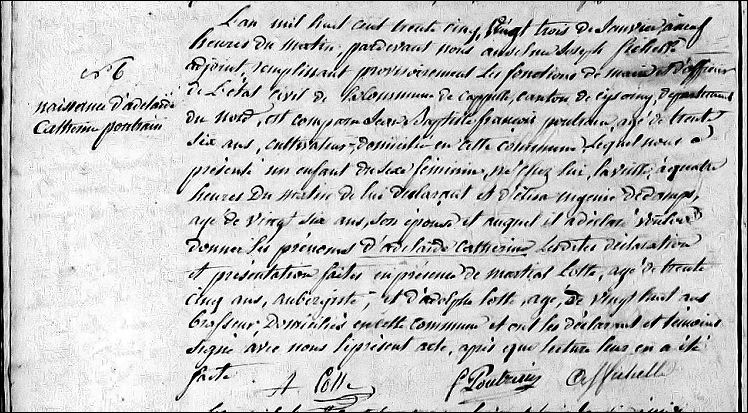 L'an mil huit cent trente cinq, vingt trois de Janvier à neuf
heures du matin pardevant nous anselme Joseph
adjoint, remplissant provisoirement les fonctions de maire et d'officier
de L'état civil de la Commune de Cappelle, canton de cysoing, département
du Nord, est comparu Jean Baptiste françois poutrain, agé de trente
six ans, cultivateur, domicilié en cette commune Lequel nous a
présenté un enfant du sexe féminin, né chez lui, la veille, à quatre
heures Du matin de lui déclarant et d'élisa Eugenie
agé de vingt six ans, son épouse et auquel il a déclaré vouloir
donner les prénoms d'adelaïde Catherine Lesdites déclaration
et présentation faites en présence de martial Lotte, agé de trente
cinq ans, aubergiste, et d'adolphe Lotte, agé, de vingt huit ans
brasseur Domiciliés en cette commune et ont les déclarant et témoins
signé avec nous le présent acte, après que lecture leur en a été
faite.
n° 6
naissance d'adelaide
Catherine poutrain
A Lotte
f Poutrain